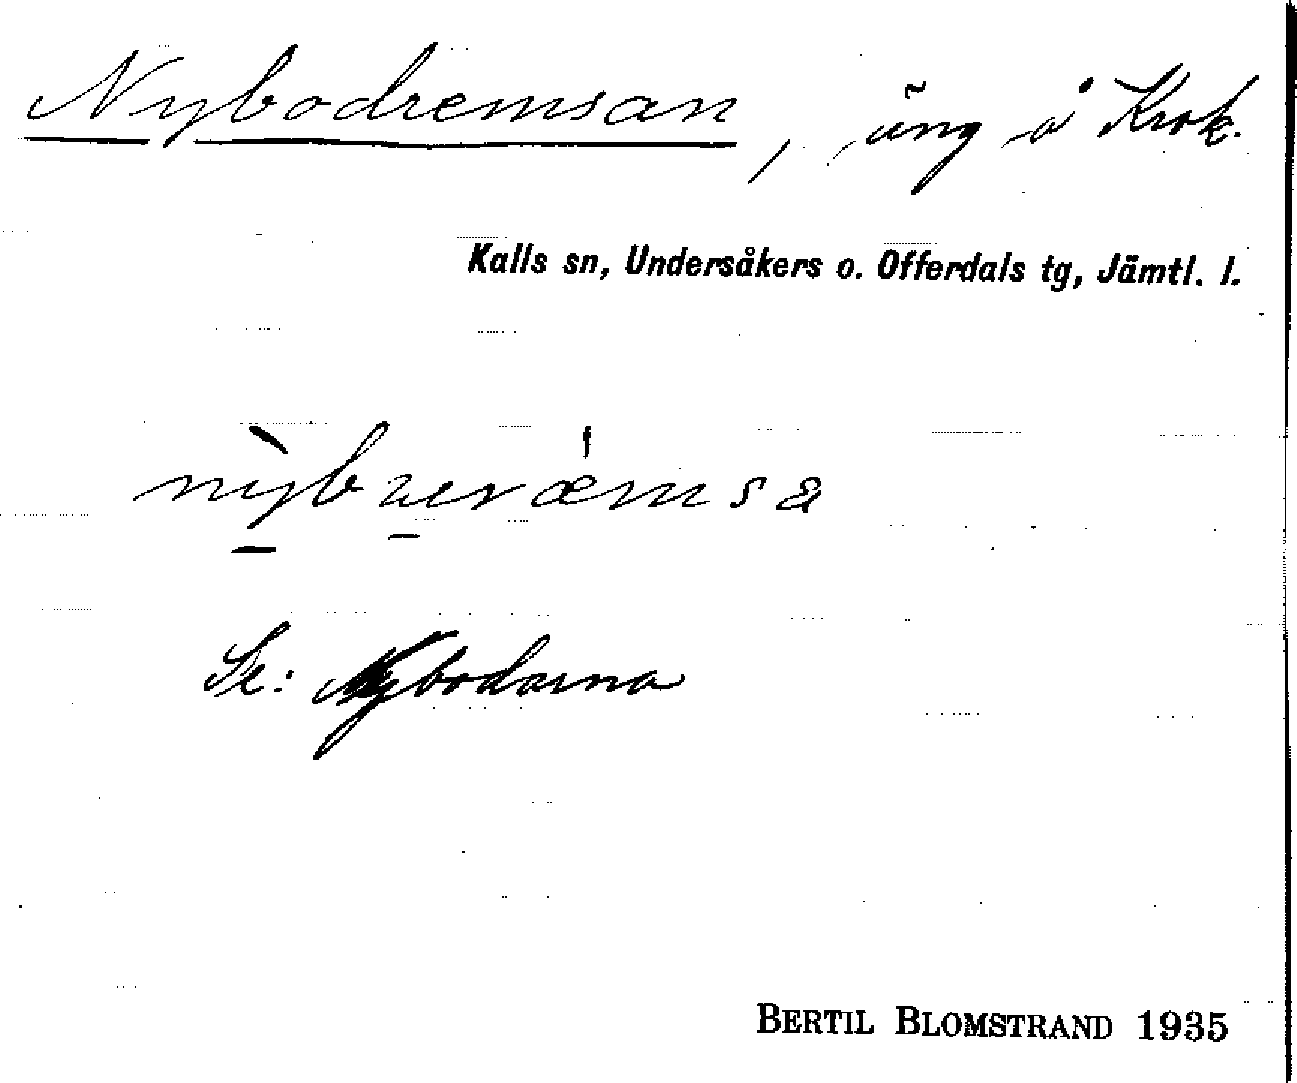 Nybodremsan, äng å Krok.
Kalls sn, Undersåkers o. Offerdals tg, Jämtl. l.
Se: Nybodarna
BERTIL BLOMSTRAND 1935